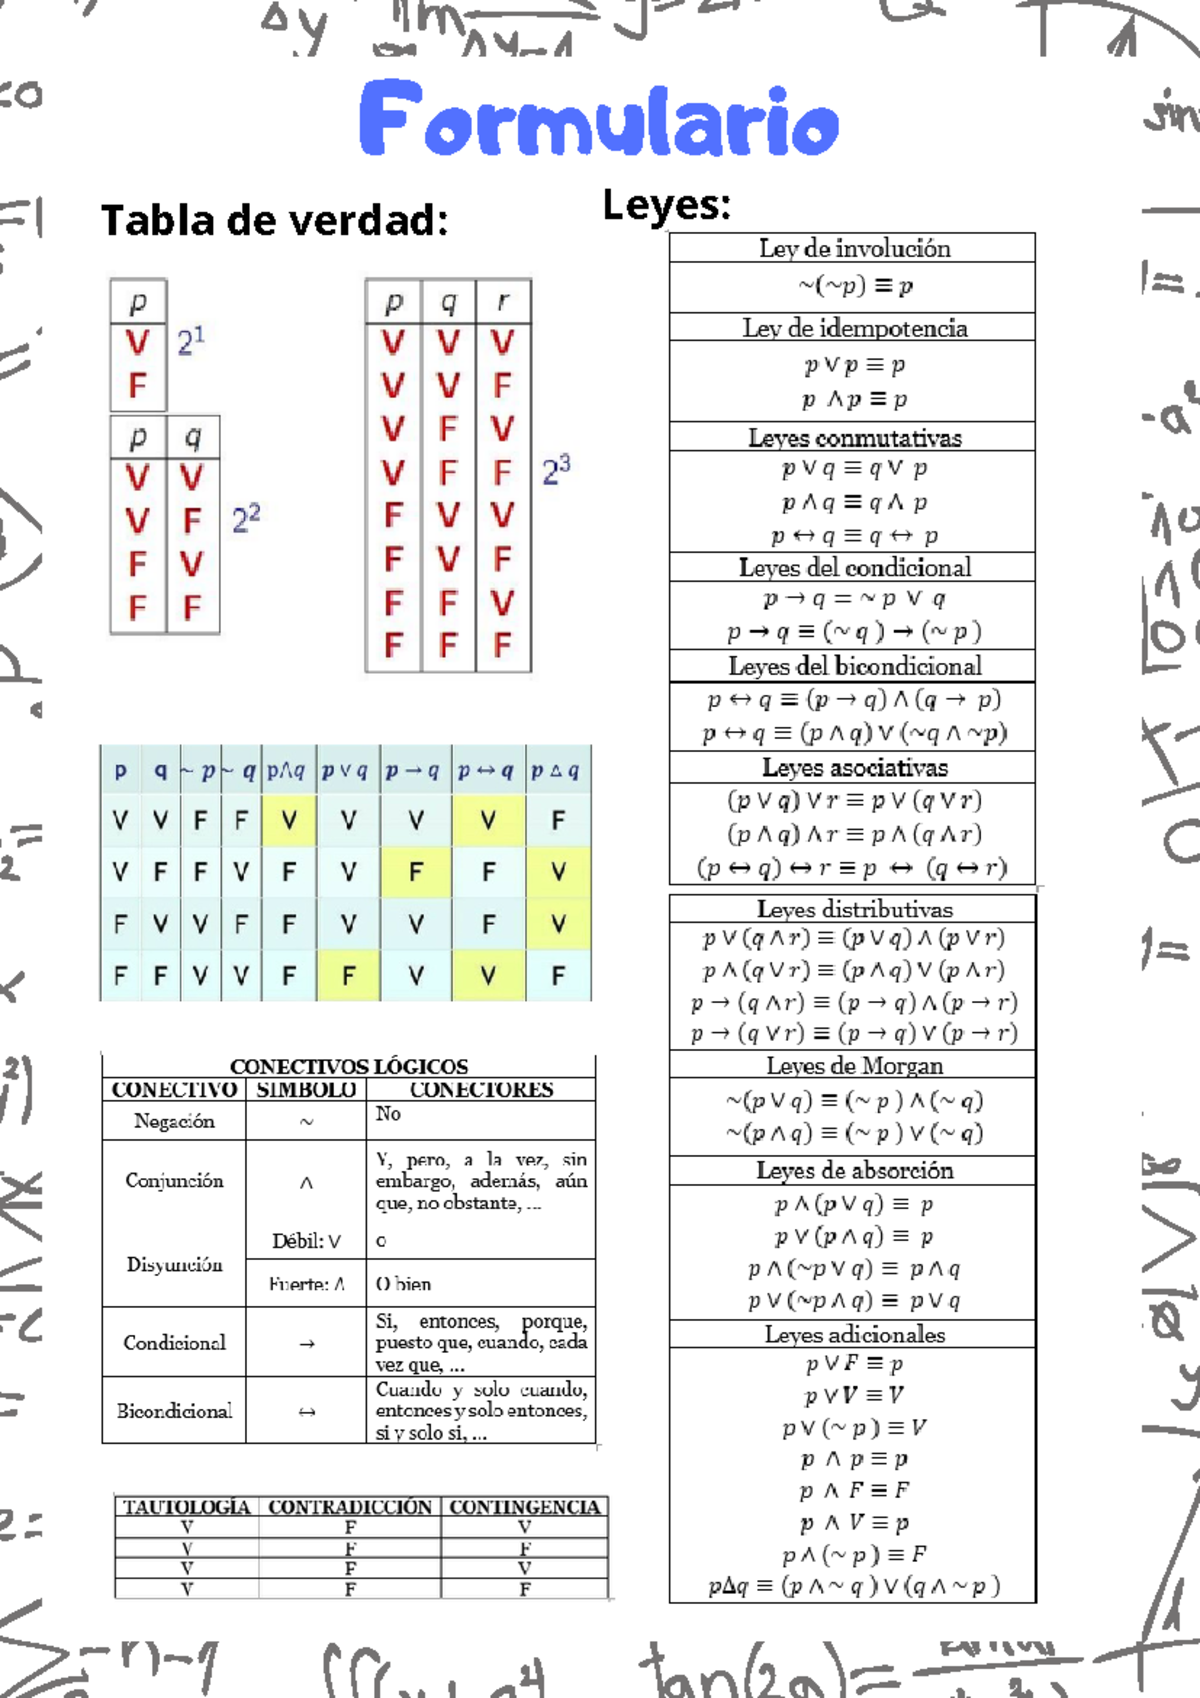 Formulario
Tabla de verdad:
p
V 2¹
F
p q
V V
V F 2²
F V
F F
p q r
V V V
V V F
V F V
V F F 2³
F V V
F V F
F F V
F F F
p q ~ p ~ q p∧q p ∨ q p → q p ↔ q p △ q
V V F F V V V V F
V F F V F V F F V
F V V F F V V F V
F F V V F F V V F
CONECTIVOS LÓGICOS
CONECTIVO SIMBOLO CONECTORES
Negación ~ No
Conjunción ∧ Y, pero, a la vez, sin
embargo, además, aún
que, no obstante, ...
Disyunción
Débil: ∨ o
Fuerte: Δ O bien
Condicional → Si, entonces, porque,
puesto que, cuando, cada
vez que, ...
Bicondicional ↔ Cuando y solo cuando,
entonces y solo entonces,
si y solo si, ...
TAUTOLOGÍA CONTRADICCIÓN CONTINGENCIA
V F V
V F F
V F V
V F F
Leyes:
Ley de involución
~(~p) ≡ p
Ley de idempotencia
p ∨ p ≡ p
p ∧ p ≡ p
Leyes conmutativas
p ∨ q ≡ q ∨ p
p ∧ q ≡ q ∧ p
p ↔ q ≡ q ↔ p
Leyes del condicional
p → q = ~ p ∨ q
p → q ≡ (~ q ) → (~ p )
Leyes del bicondicional
p ↔ q ≡ (p → q) ∧ (q → p)
p ↔ q ≡ (p ∧ q) ∨ (~q ∧ ~p)
Leyes asociativas
(p ∨ q) ∨ r ≡ p ∨ (q ∨ r)
(p ∧ q) ∧ r ≡ p ∧ (q ∧ r)
(p ↔ q) ↔ r ≡ p ↔ (q ↔ r)
Leyes distributivas
p ∨ (q ∧ r) ≡ (p ∨ q) ∧ (p ∨ r)
p ∧ (q ∨ r) ≡ (p ∧ q) ∨ (p ∧ r)
p → (q ∧ r) ≡ (p → q) ∧ (p → r)
p → (q ∨ r) ≡ (p → q) ∨ (p → r)
Leyes de Morgan
~(p ∨ q) ≡ (~ p ) ∧ (~ q)
~(p ∧ q) ≡ (~ p ) ∨ (~ q)
Leyes de absorción
p ∧ (p ∨ q) ≡ p
p ∨ (p ∧ q) ≡ p
p ∧ (~p ∨ q) ≡ p ∧ q
p ∨ (~p ∧ q) ≡ p ∨ q
Leyes adicionales
p ∨ F ≡ p
p ∨ V ≡ V
p ∨ (~ p ) ≡ V
p ∧ p ≡ p
p ∧ F ≡ F
p ∧ V ≡ p
p ∧ (~ p ) ≡ F
pΔq ≡ (p ∧ ~ q ) ∨ (q ∧ ~ p )